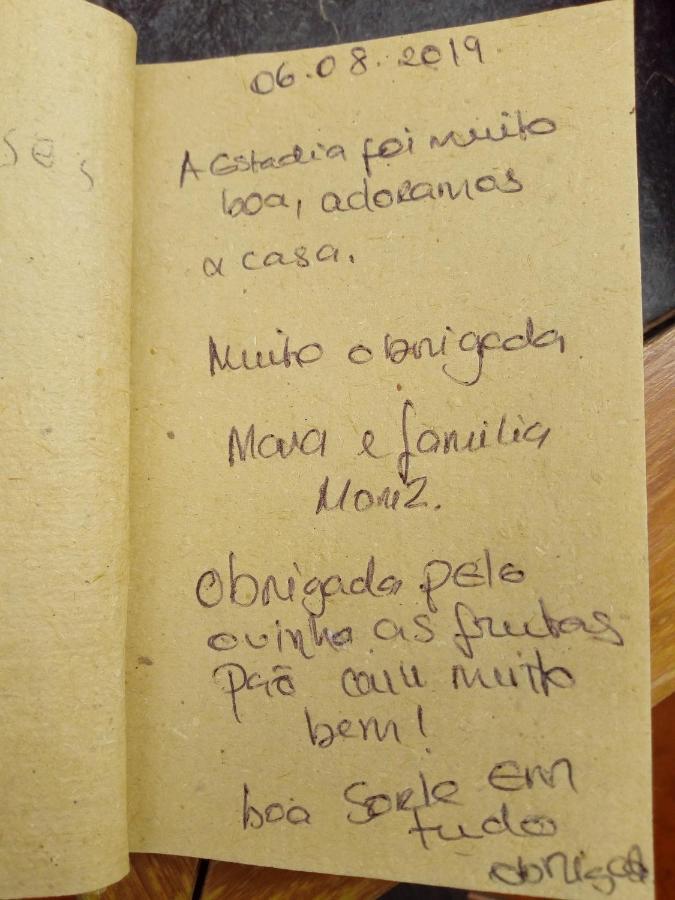 06.08.2019
A Estadia foi muito
boa, adoramos
a casa.
Muito obrigada
e família
Moniz.
Obrigada pelo
ovinho as frutas
pão caiu muito
bem!
boa Sorte em
tudo